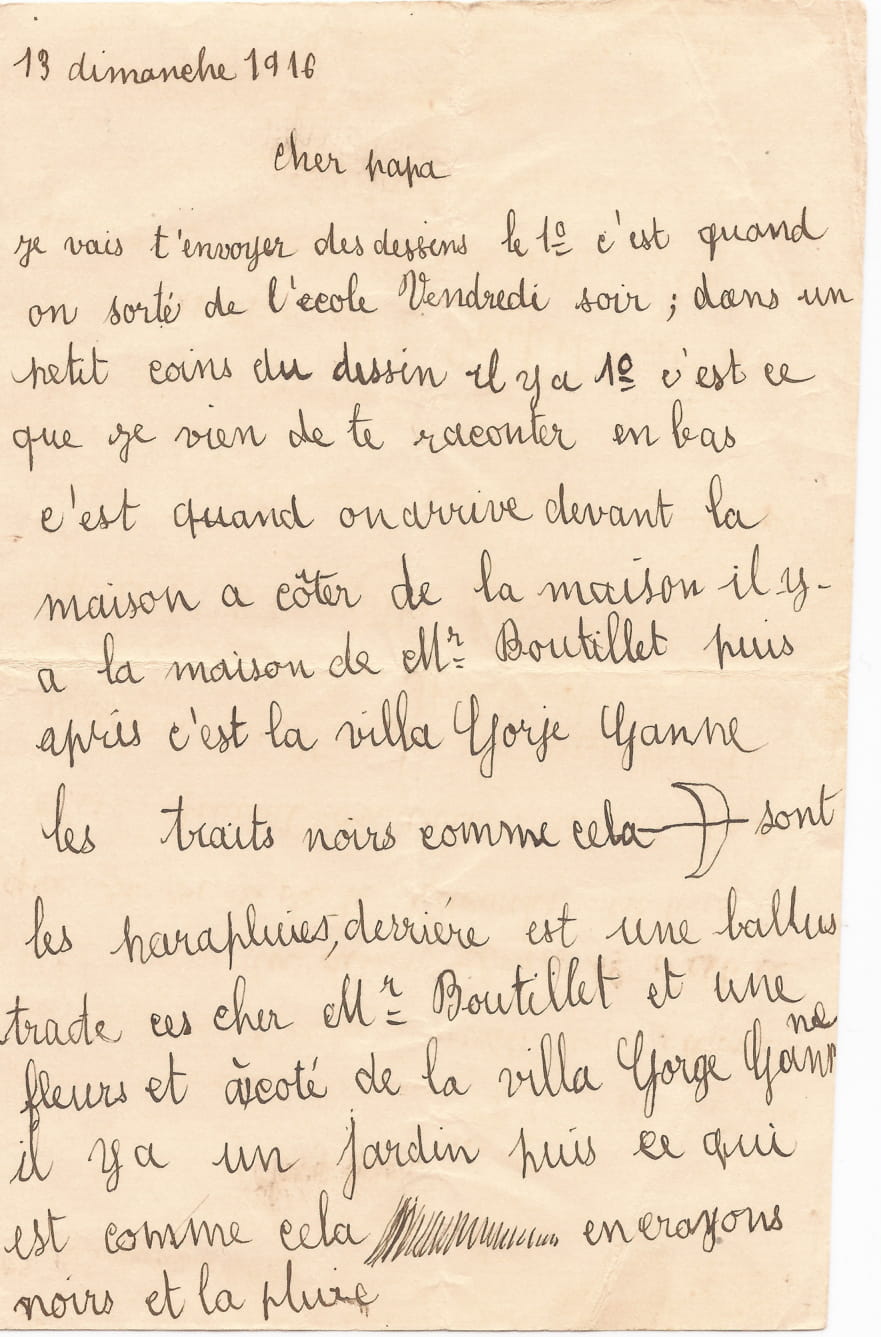 13 dimanche 1916
cher papa
je vais t'envoyer des dessins le 1º c'est quand
on sorté de l'ecole Vendredi soir ; dans un
petit coins du dessin il y a 1º c'est ce
que je vien de te raconter en bas
c'est quand on arrive devant la
maison a côter de la maison il y-
a la maison de Mr Boutillet puis
après c'est la villa Gorje Ganne
les traits noirs comme cela sont
les parapluies, derriére est une ballus
trade ces cher Mr Boutillet et une
fleurs et à coté de la villa Gorge Ganne
il y a un jardin puis ce qui
est comme cela en crayons
noirs et la pluie